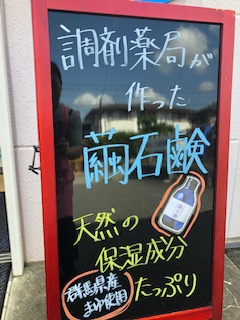 調剤薬局が
作った
繭石鹸
天然の
保湿成分
たっぷり
群馬県産
まゆ使用